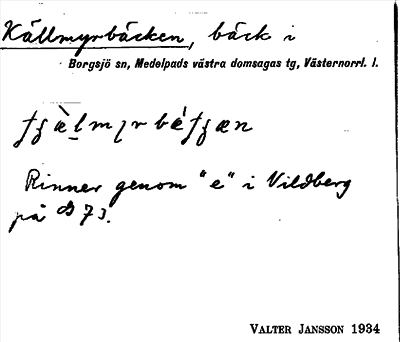 Källmyrbäcken, bäck i
Borgsjö sn, Medelpads västra domsagas tg, Västernorrl. l.
Rinner genom "e" i Vildberg
på B 73.
VALTER JANSSON 1934